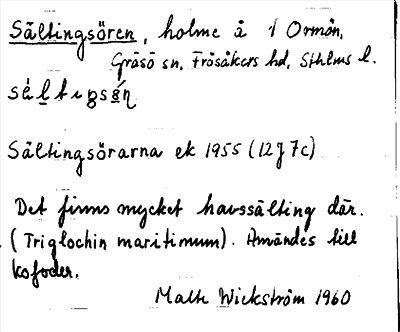 Sältingsören, holme å Ormön,
Gräsö sn, Frösåkers hd, Sthlms l.
Sältingsörarna ek 1955 (12J 7c)
Det finns mycket havssälting där.
(Triglochin maritimum). Användes till
kofoder.
Math Wickström 1960